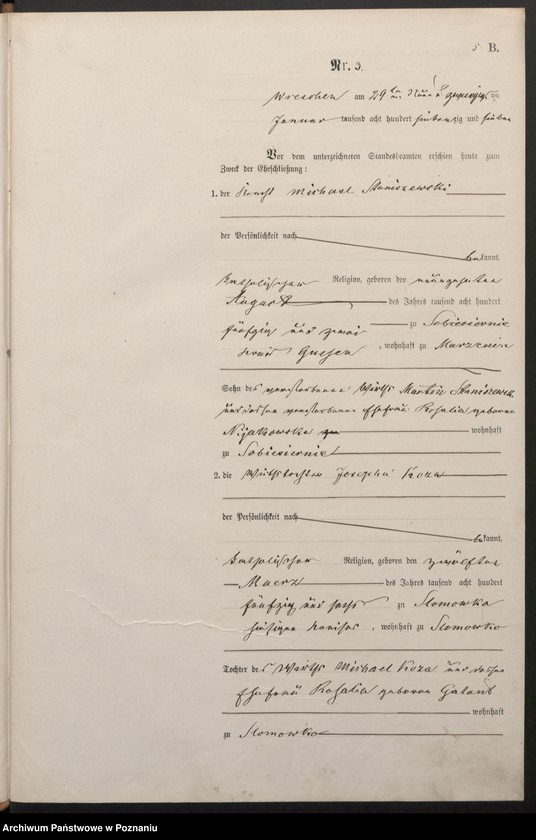 5 B.
Nr. 5.
Wreschen am 29 ten
Januar tausend acht hundert siebenzig und sieben
Vor dem unterzeichneten Standesbeamten erschien heute zum
Zweck der Eheschließung:
1. der Knecht Michael Staniszewski
der Persönlichkeit nach
bekannt.
katholischer Religion, geboren den neunzehnten
August des Jahres tausend acht hundert
fünfzig und zwei zu Sobiesiernie
Kreis Gnesen, wohnhaft zu Marzenin
Sohn des verstorbenen Wirths Martin Staniszewski
und dessen verstorbene Ehefrau Rosalia geborene
wohnhaft
zu Sobiesiernie
2. die Wirthstochter Josepha Koza
der Persönlichkeit nach
bekannt.
katholischer Religion, geboren den zwölften
Maerz des Jahres tausend acht hundert
fünfzig und sechs zu Slomowko
hiesigen Kreises, wohnhaft zu Slomowko
Tochter des Wirths Michael Koza und dessen
Ehefrau Rosalia geborene
wohnhaft
zu Slomowko
Archiwum Państwowe w Poznaniu